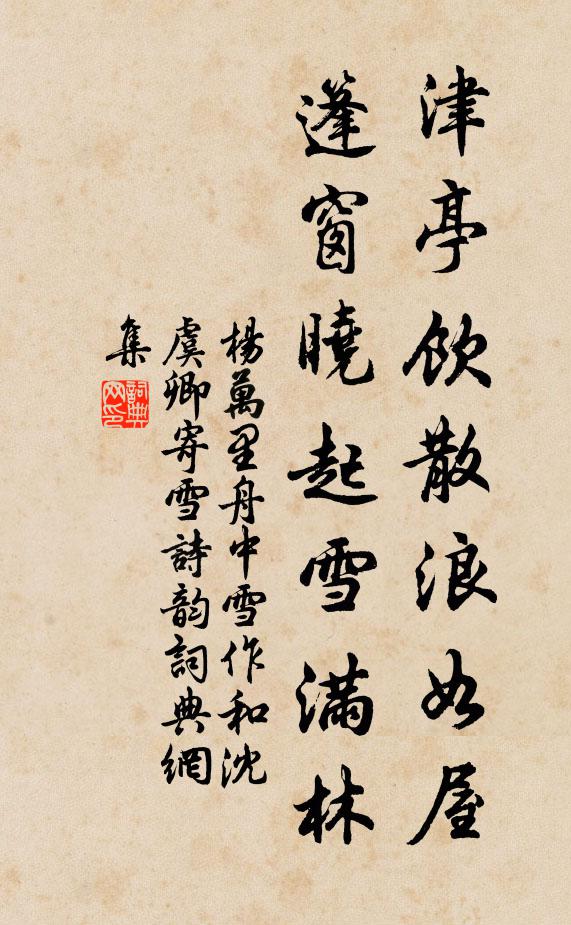 津亭飲散浪如屋
篷窗曉起雪滿林
楊萬里舟中雪作和沈
虞卿寄雪詩韵詞典網
集
詞典
网印